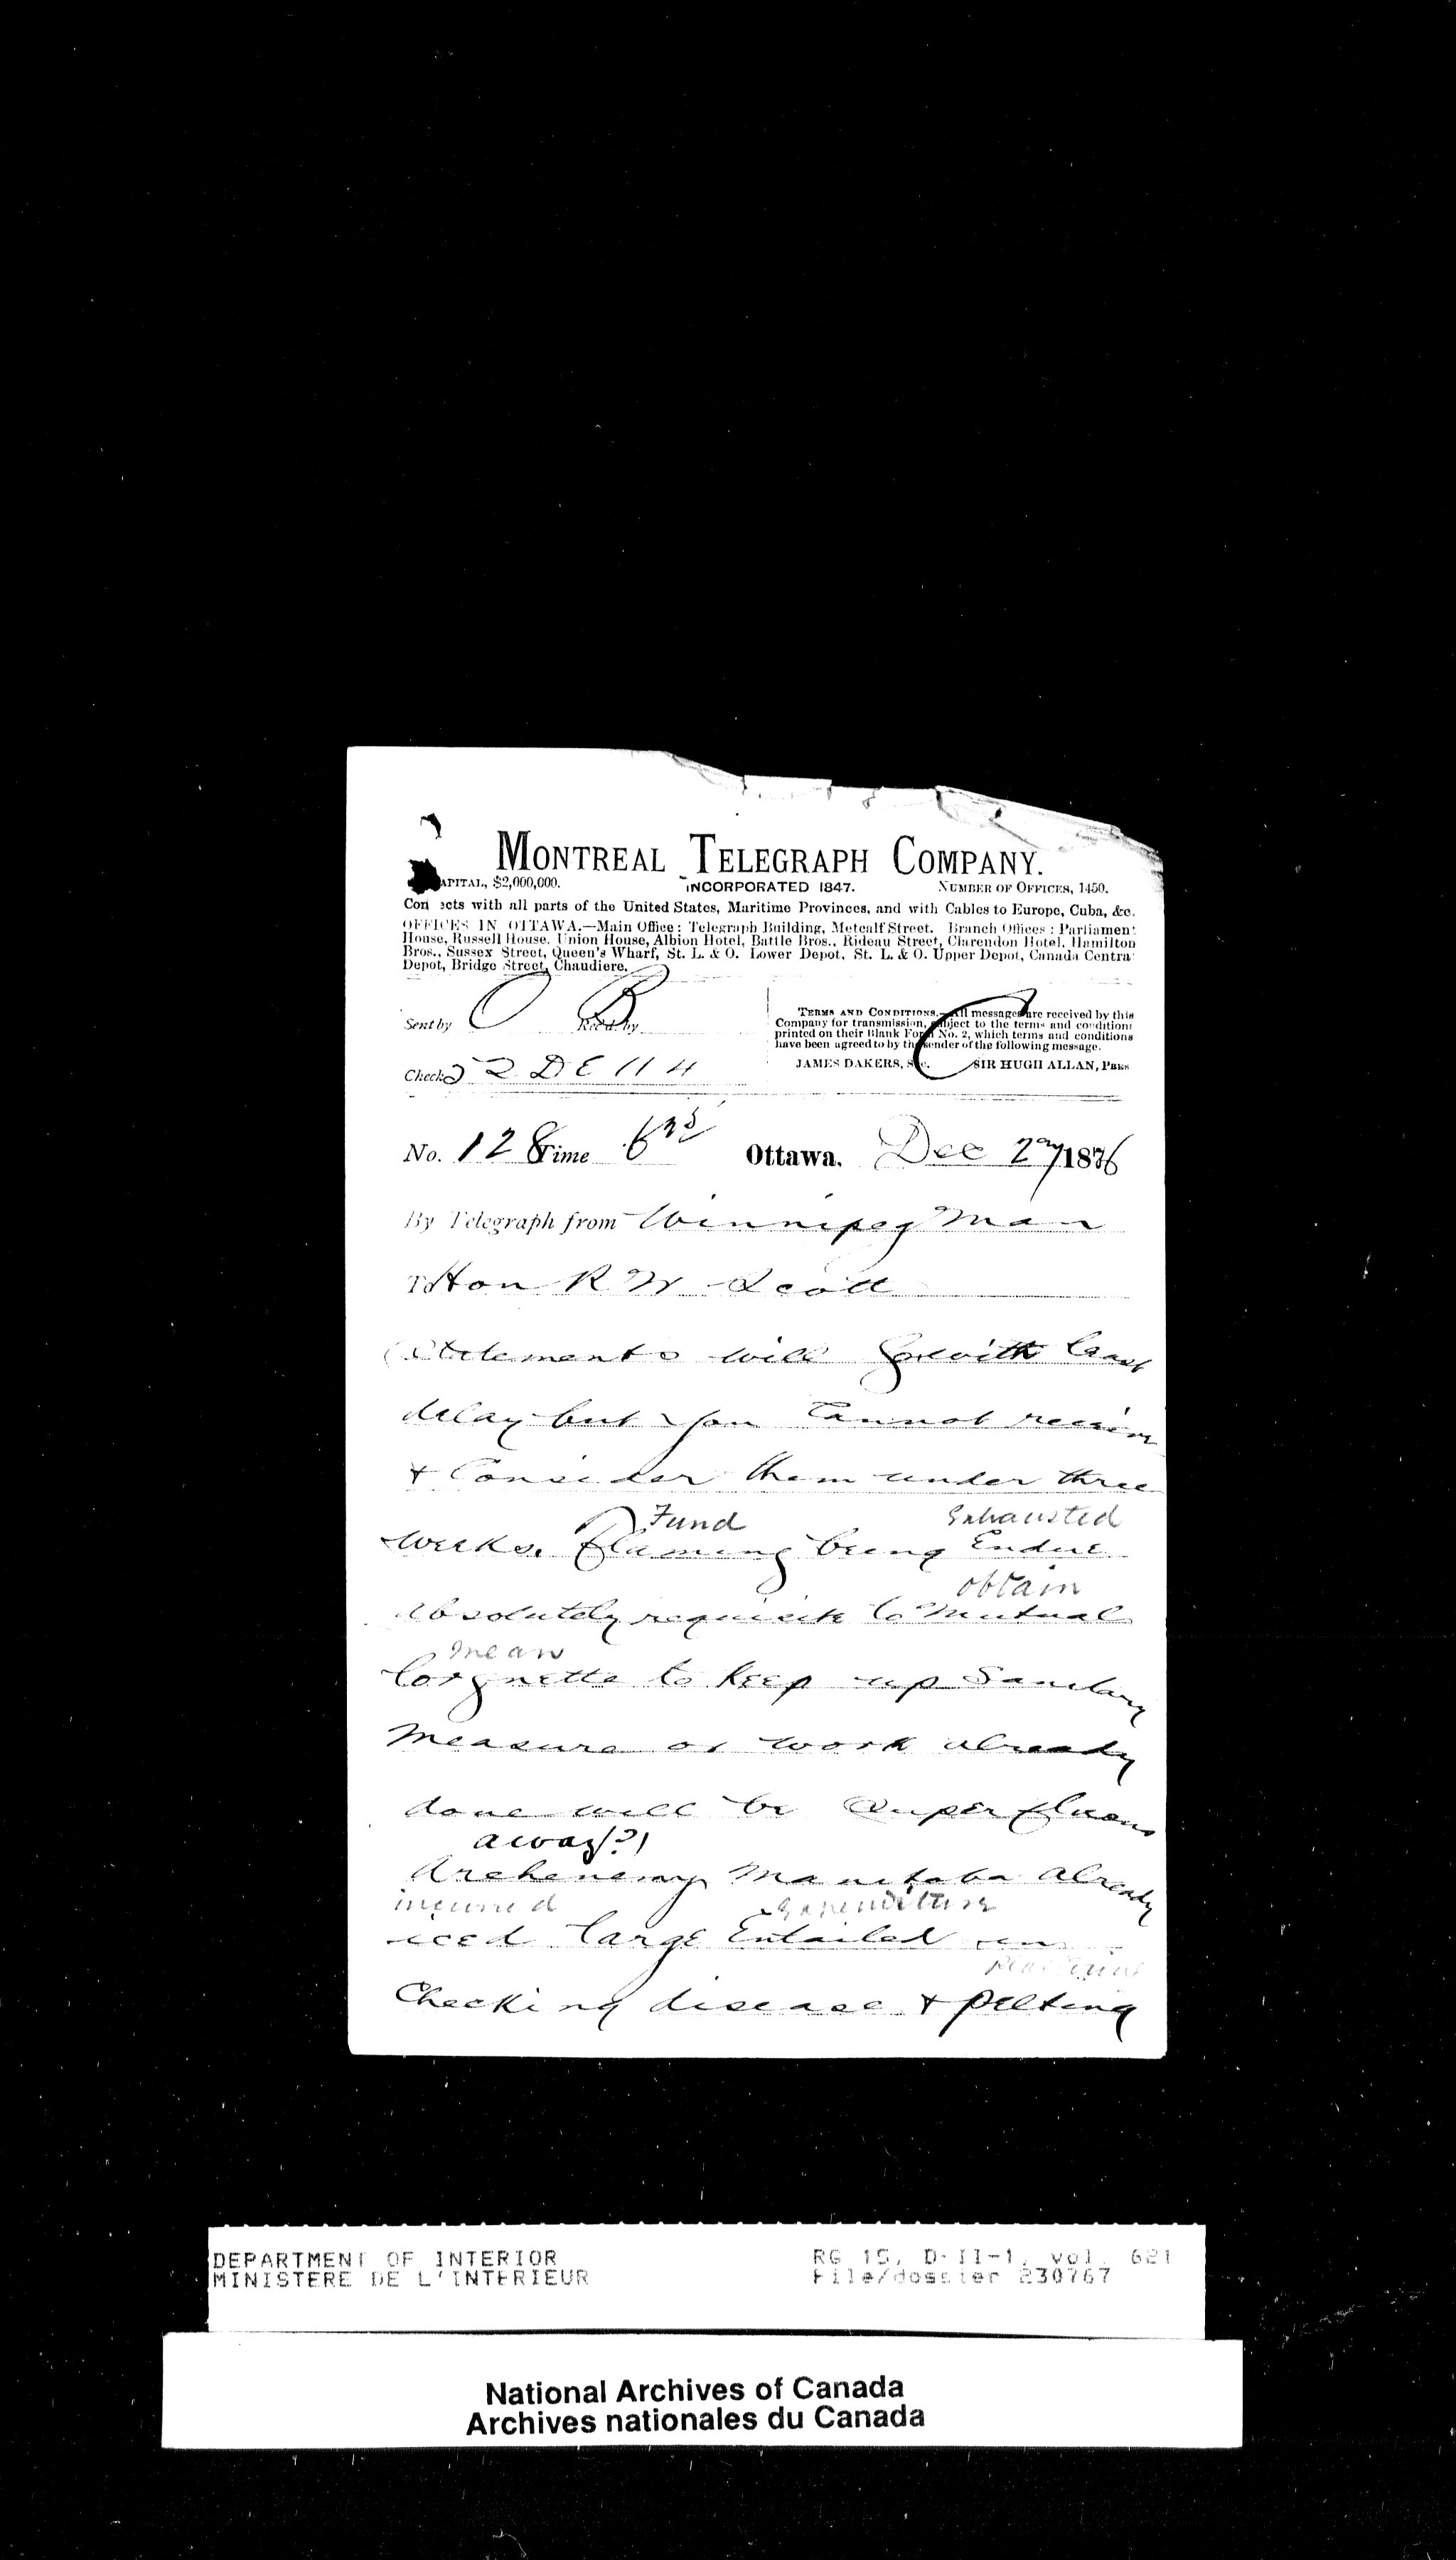 MONTREAL TELEGRAPH COMPANY.
APITAL, $2,000,000. INCORPORATED 1847. NUMBER OF OFFICES, 1450.
Con ects with all parts of the United States, Maritime Provinces, and with Cables to Europe, Cuba, &c.
OFFICES IN OTTAWA.—Main Office: Telegraph Building, Metcalf Street. Branch Offices: Parliament
House, Russell House, Union House, Albion Hotel, Battle Bros., Rideau Street, Clarendon Hotel, Hamilton
Bros., Sussex Street, Queen's Wharf, St. L. & O. Lower Depot, St. L. & O. Upper Depot, Canada Centra
Depot, Bridge Street, Chaudiere.
Sent by O Rec'd by B
TERMS AND CONDITIONS.—All messages are received by this
Company for transmission, subject to the terms and conditions
printed on their Blank Form No. 2, which terms and conditions
have been agreed to by the sender of the following message.
JAMES DAKERS, Sec. SIR HUGH ALLAN, PRES
Check 52 DE 114
No. 128 Time Ottawa, Dec 2 1876
By Telegraph from Winnipeg Man
To Hon R W Scott
Statements will go with least
delay but you cannot receive
& Consider them under three
Fund Exhausted
weeks. Flaming being Endue
obtain
absolutely requisite to Mutual
mean
Lorgnette to keep up Sanitary
Measure or work already
done will be Superfluous
away(?)
Archenemy Manitoba already
incurred Expenditure
iced large Entailed in
Checking disease & pelting
DEPARTMENT OF INTERIOR
MINISTERE DE L'INTERIEUR
RG 15, D-II-1, vol. 621
File/dossier 230767
National Archives of Canada
Archives nationales du Canada